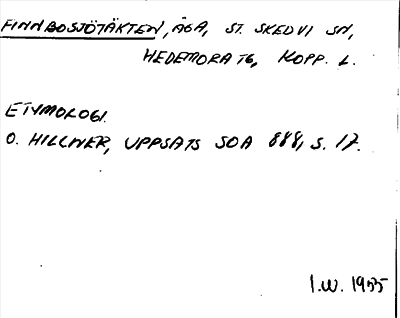 FINNBOSJÖTÄKTEN, ÄGA, ST. SKEDVI SN,
HEDEMORA TG, KOPP. L.
ETYMOLOGI.
O. HILLNER, UPPSATS SOA 888, S. 17.
I.W. 1955